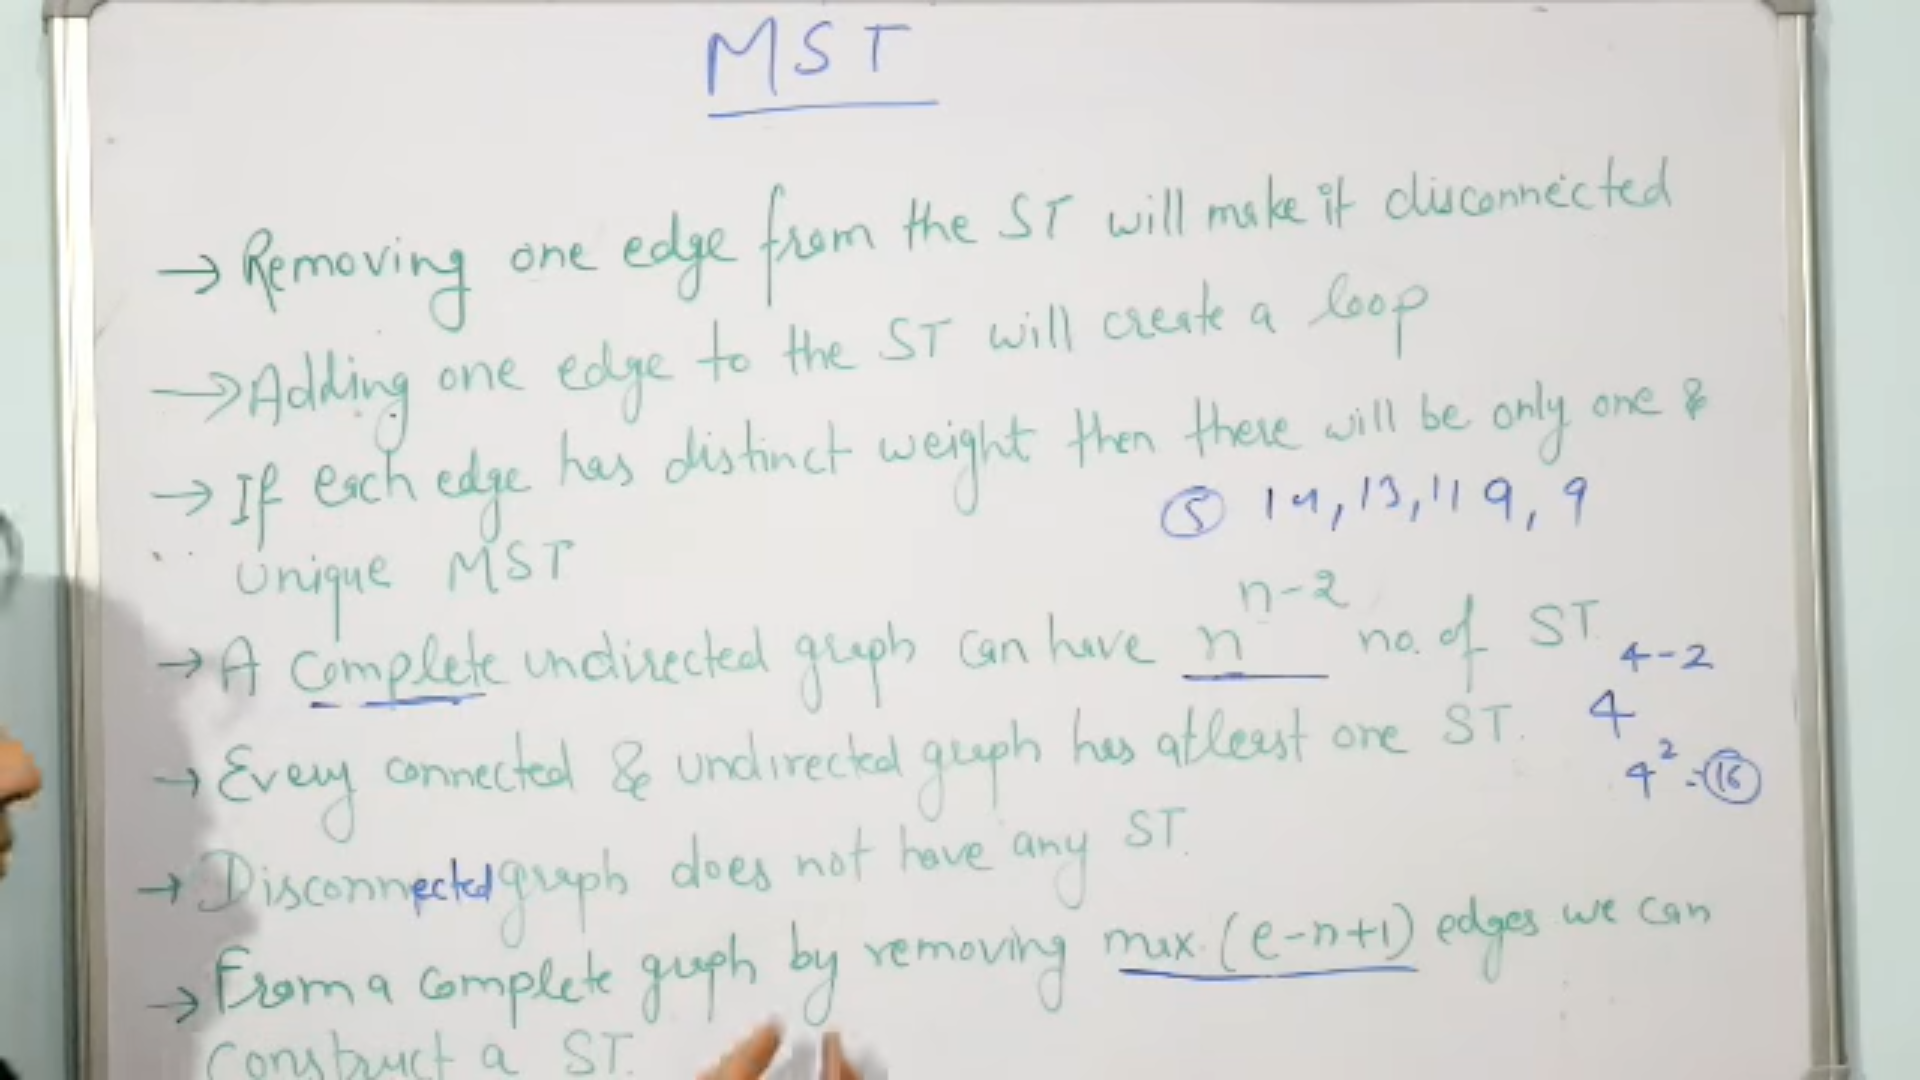 MST
→ Removing one edge from the ST will make it disconnected
→ Adding one edge to the ST will create a loop
→ If each edge has distinct weight then there will be only one &
⑤ 14, 13, 11 9, 9
unique MST
→ A complete undirected graph can have n^n-2 no. of ST.
4^4-2
→ Every connected & undirected graph has atleast one ST.
4^2 = 16
→ Disconnected graph does not have any ST.
→ From a complete graph by removing max. (e-n+1) edges we can
construct a ST.